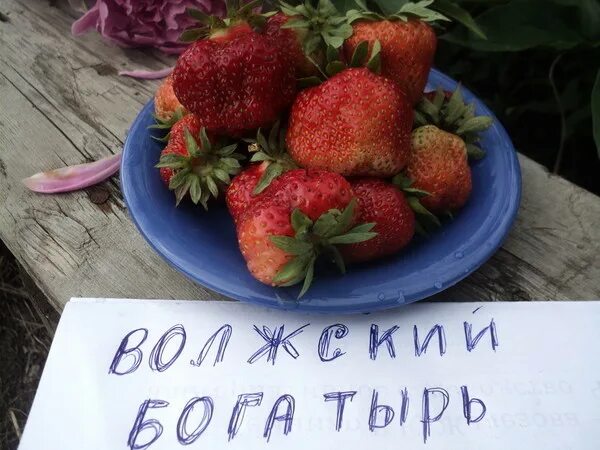 ВОЛЖСКИЙ
БОГАТЫРЬ